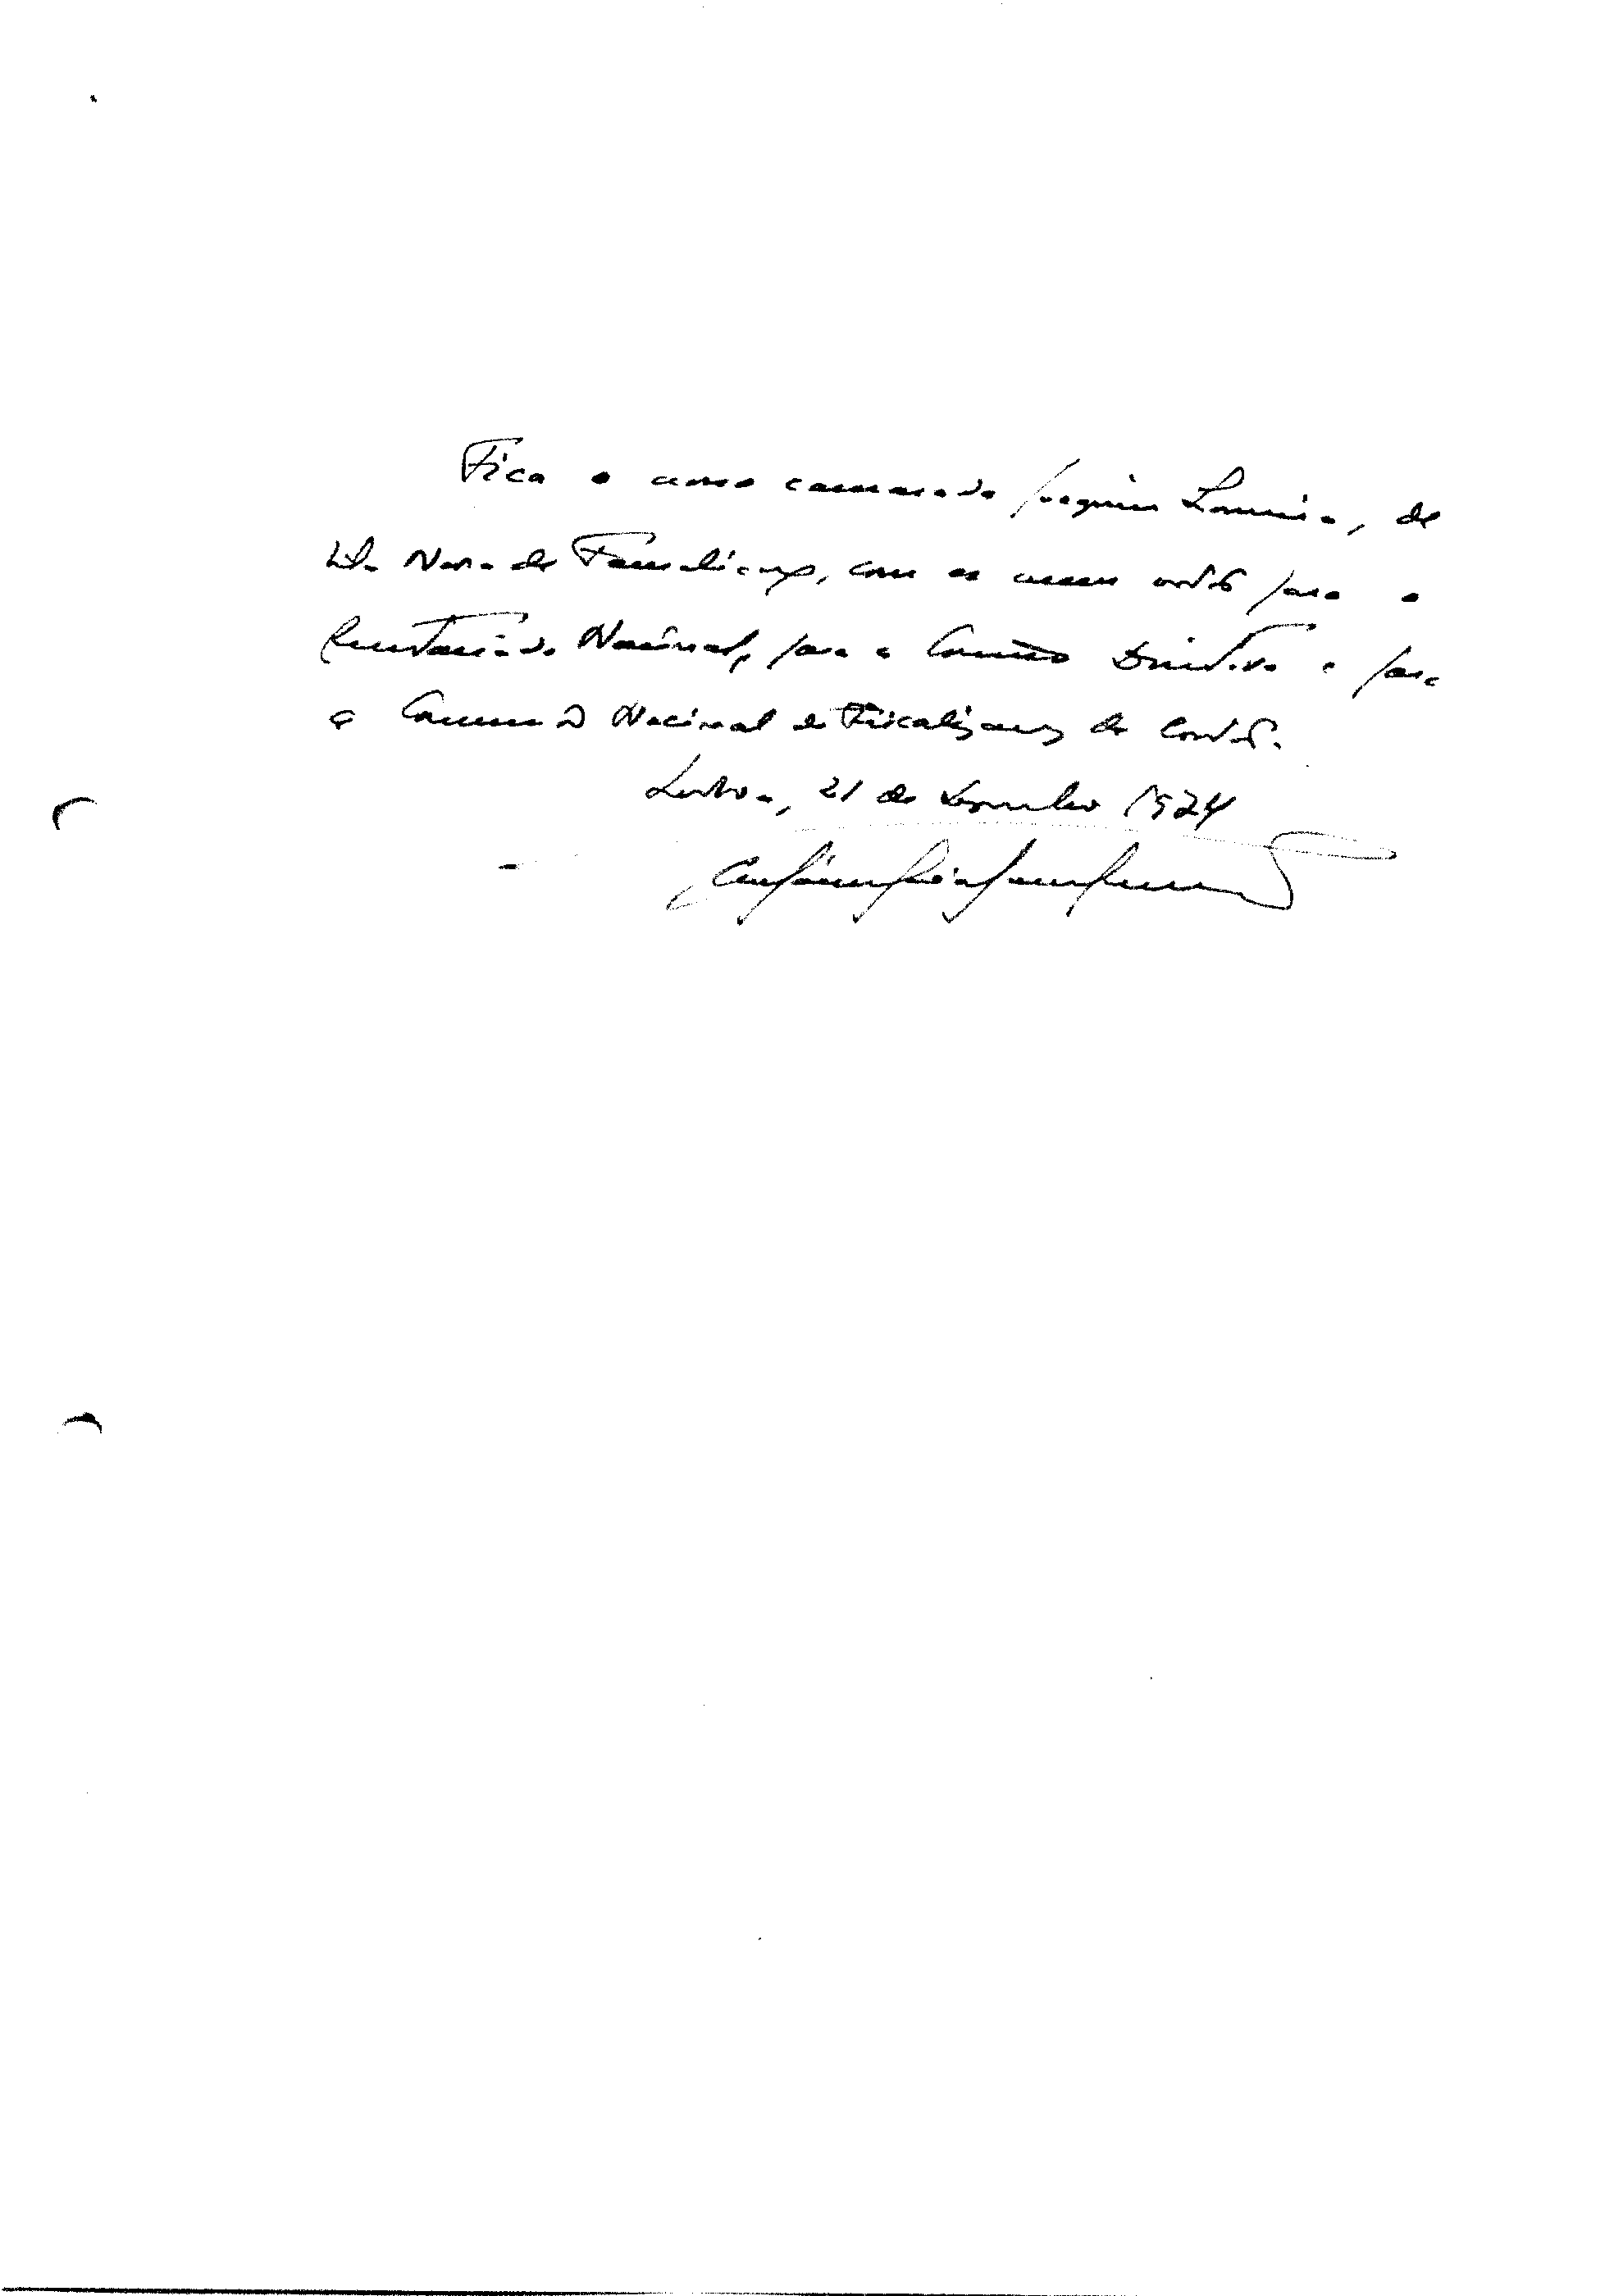 Fica o nosso camarada Joaquim Loureiro, de
Vila Nova de Famalicão, com os meus votos para o
Secretariado Nacional, para a Comissão Directiva e para
a Comissão Nacional de Fiscalização de Contas.
Lisboa, 21 de Dezembro 1974